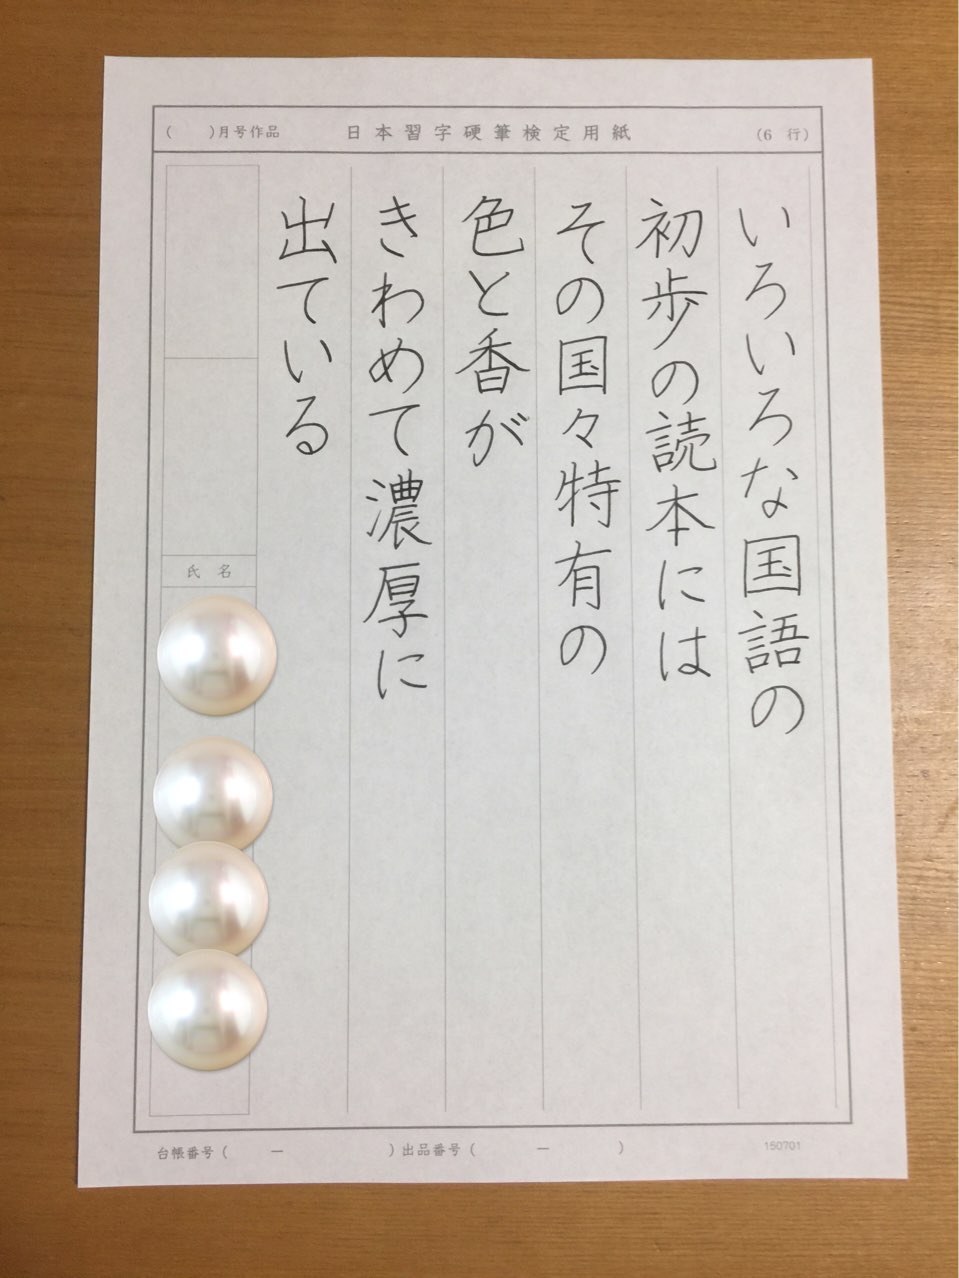 (　　)月号作品　日本習字硬筆検定用紙　(6 行)
いろいろな国語の
初歩の読本には
その国々特有の
色と香が
きわめて濃厚に
出ている
氏名
台帳番号(　　ー　　　　)出品番号(　　ー　　　　)　150701